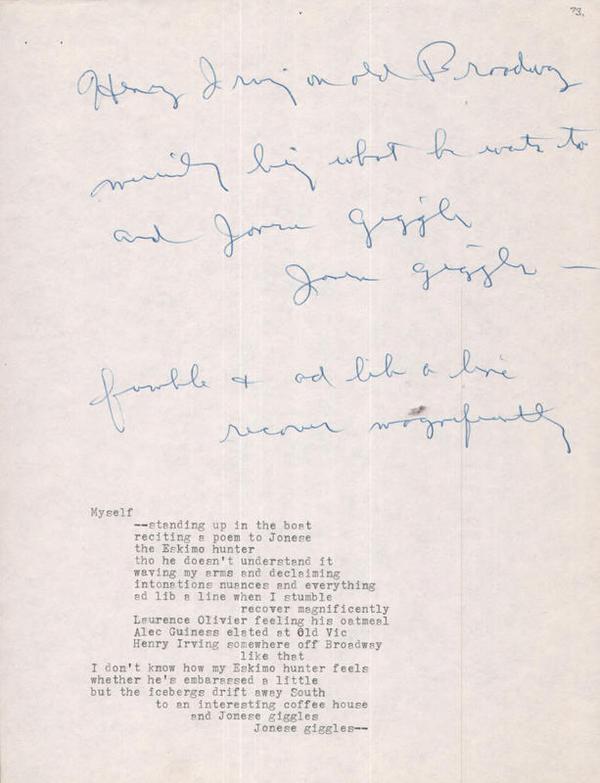 73.
Henry Irving on old Broadway
being what he wants to
and Jonese giggles
Jonese giggles —
fumble + ad lib a line
recover magnificently
Myself
--standing up in the boat
reciting a poem to Jonese
the Eskimo hunter
tho he doesn't understand it
waving my arms and declaiming
intonations nuances and everything
ad lib a line when I stumble
recover magnificently
Laurence Olivier feeling his oatmeal
Alec Guiness elated at Old Vic
Henry Irving somewhere off Broadway
like that
I don't know how my Eskimo hunter feels
whether he's embarassed a little
but the icebergs drift away South
to an interesting coffee house
and Jonese giggles
Jonese giggles--